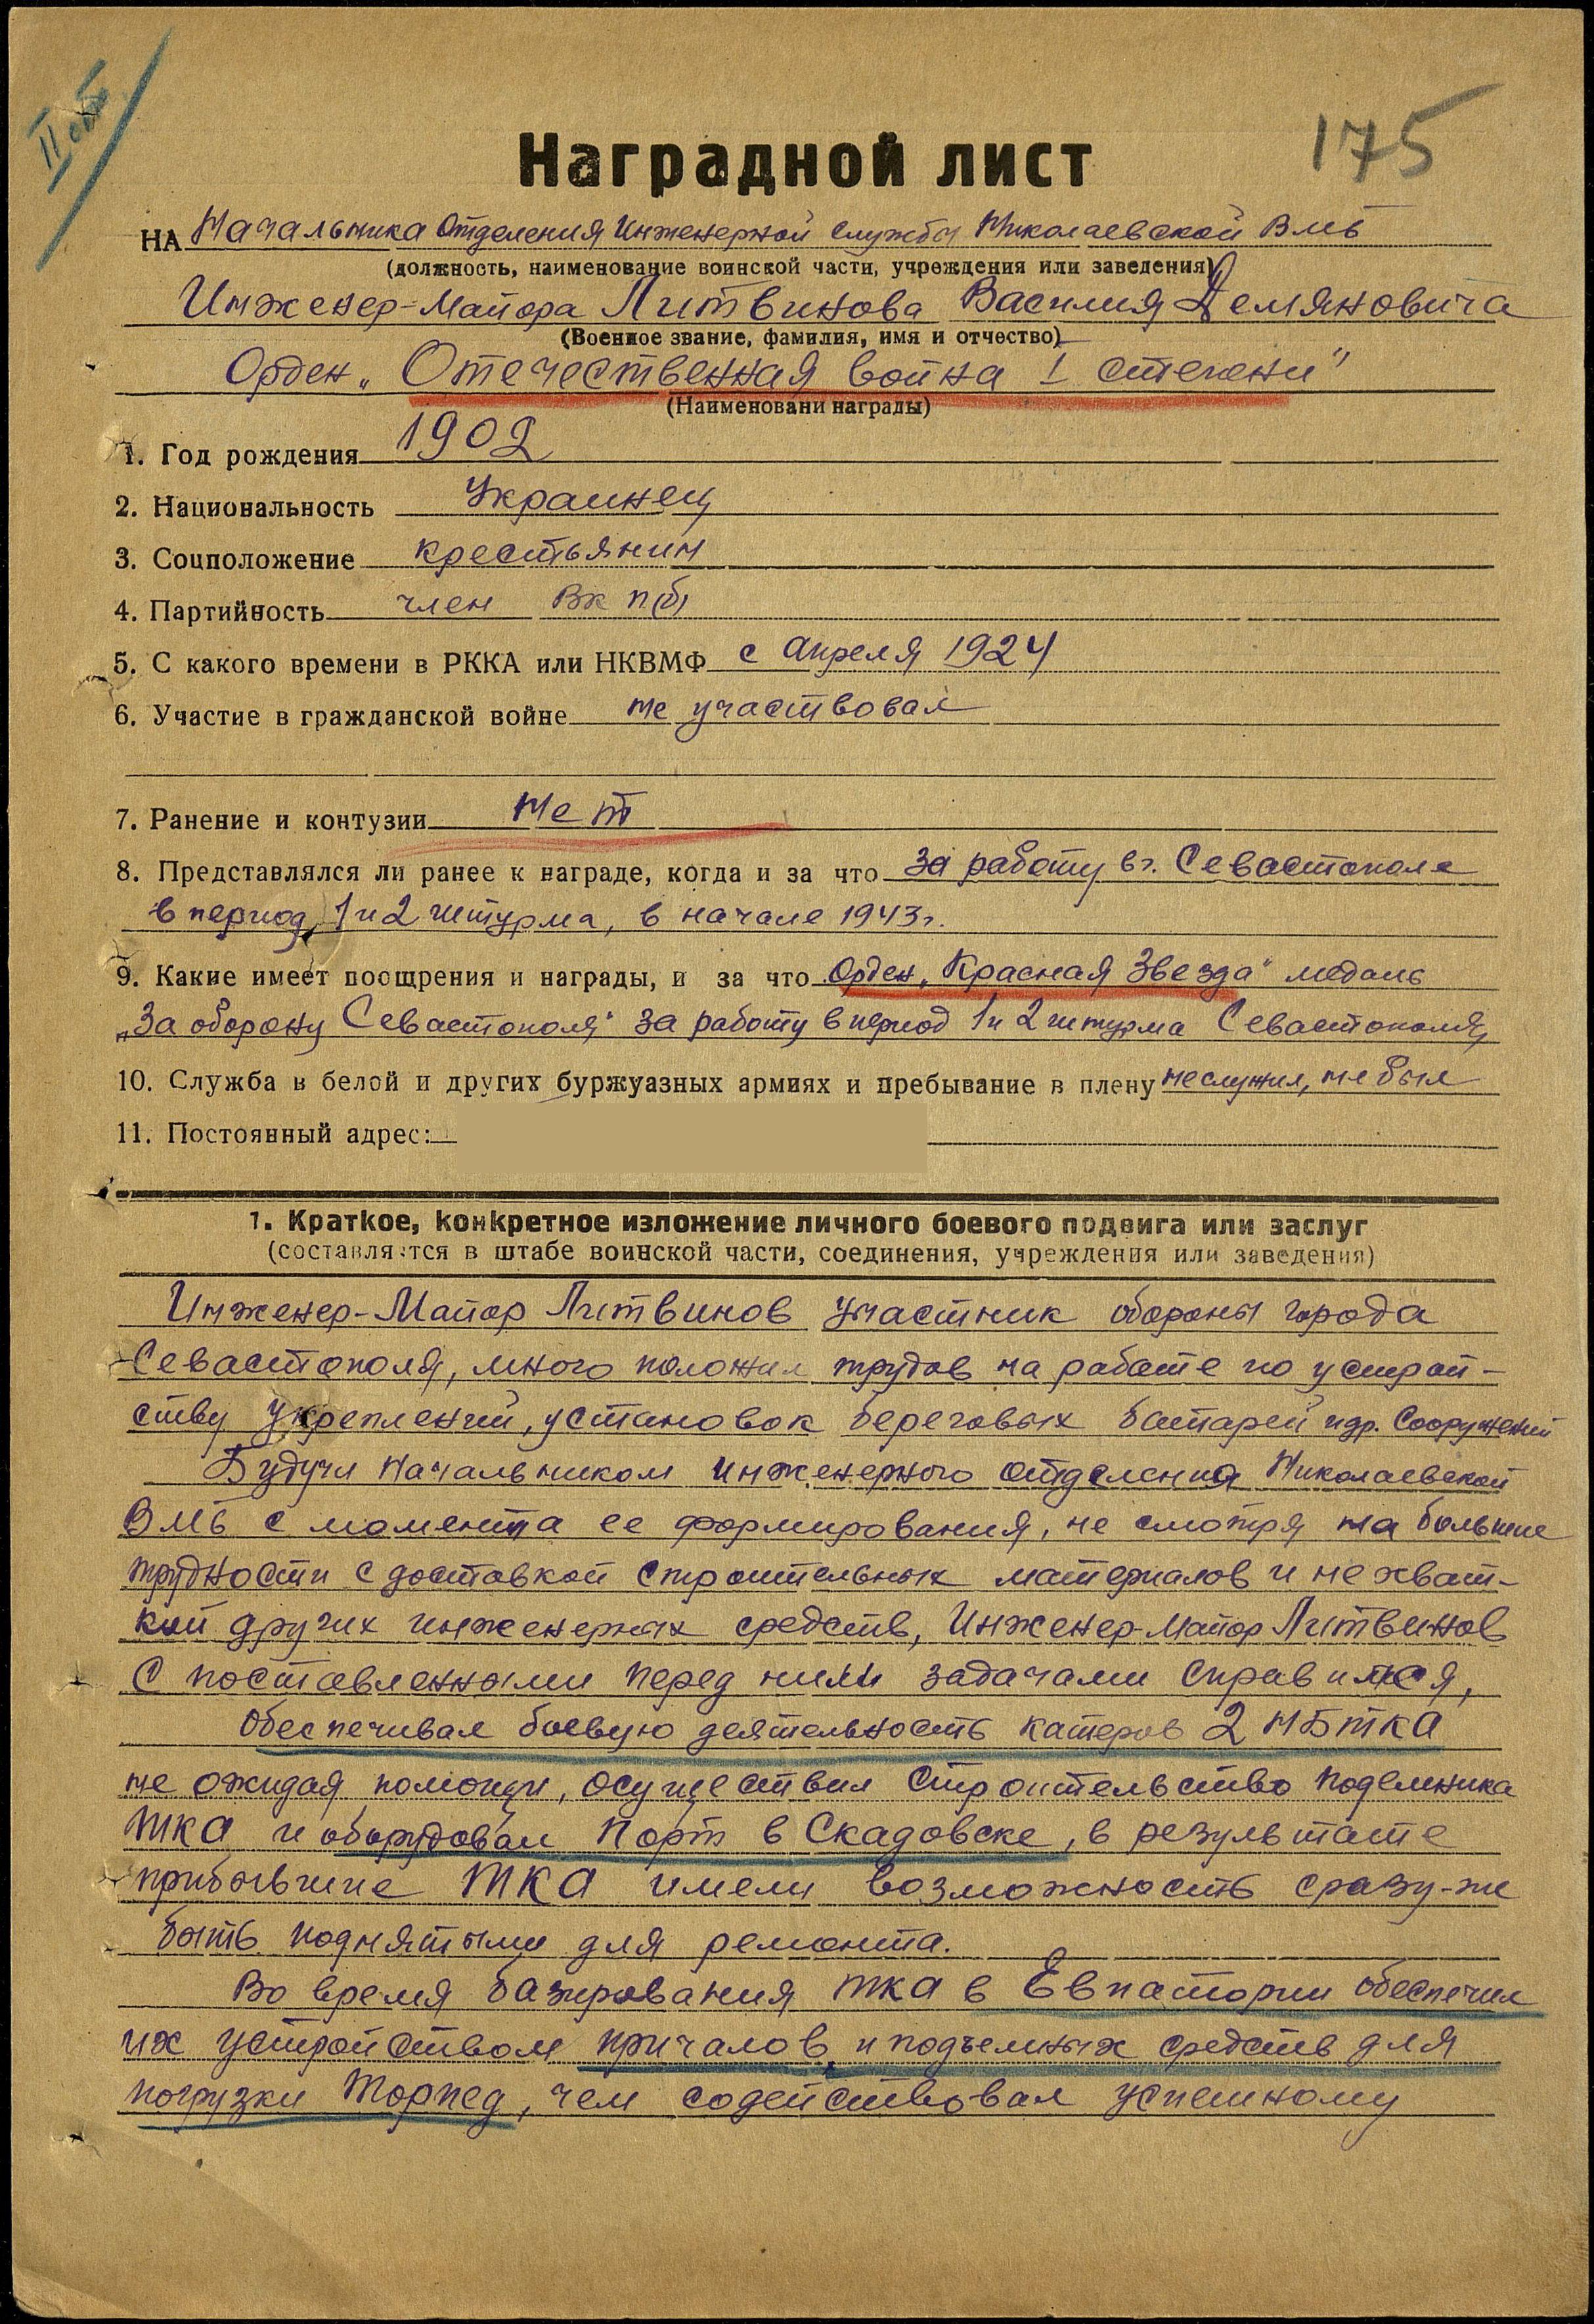 II ст
175
Наградной лист
НА Начальника Отделения Инженерной службы Николаевской ВМБ
(должность, наименование воинской части, учреждения или заведения)
Инженер-Майора Литвинова Василия Демяновича
(Военное звание, фамилия, имя и отчество)
Орден „Отечественная война I степени"
(Наименовани награды)
1. Год рождения 1902
2. Национальность Украинец
3. Соцположение крестьянин
4. Партийность член ВКП(б)
5. С какого времени в РККА или НКВМФ с Апреля 1924
6. Участие в гражданской войне не участвовал
7. Ранение и контузии Нет
8. Представлялся ли ранее к награде, когда и за что за работу в г. Севастополе
в период 1 и 2 штурма, в начале 1943г.
9. Какие имеет поощрения и награды, и за что Орден „Красная Звезда" медаль
„За оборону Севастополя" за работу в период 1 и 2 штурма Севастополя,
10. Служба в белой и других буржуазных армиях и пребывание в плену не служил, не был
11. Постоянный адрес:
1. Краткое, конкретное изложение личного боевого подвига или заслуг
(составляется в штабе воинской части, соединения, учреждения или заведения)
Инженер-Майор Литвинов участник обороны города
Севастополя, много положил трудов на работе по устрой-
ству укреплений, установок береговых батарей и др. сооружений
Будучи Начальником инженерного отделения Николаевской
ВМБ с момента ее формирования, не смотря на большие
трудности с доставкой строительных материалов и не хват-
кой других инженерных средств, Инженер-Майор Литвинов
с поставленными перед ним задачами справился,
Обеспечивал боевую деятельность катеров 2 НБТКА
не ожидая помощи, осуществил строительство подъемника
ТКА и оборудовал Порт в Скадовске, в результате
прибывшие ТКА имели возможность сразу-же
быть поднятыми для ремонта.
Во время базирования ТКА в Евпатории обеспечил
их устройством причалов и подъемных средств для
погрузки Торпед, чем содействовал успешному